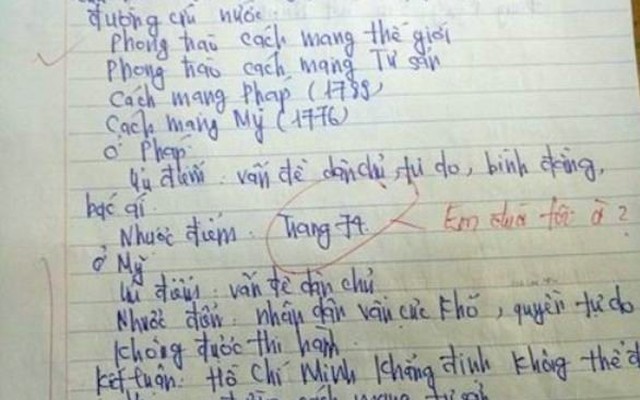 đường cứu nước.
Phong trào cách mạng thế giới
Phong trào cách mạng Tư sản
Cách mạng Pháp (1789)
Cách mạng Mỹ (1776)
Ở Pháp
Ưu điểm: vấn đề dân chủ, tự do, bình đẳng,
bác ái.
Nhược điểm: Trang 74. Em đùa tôi à?
Ở Mỹ
Ưu điểm: vấn đề dân chủ
Nhược điểm: nhân dân vẫn cực khổ, quyền tự do
không được thi hành.
Kết luận: Hồ Chí Minh khẳng định không thể
cách mạng tư sản